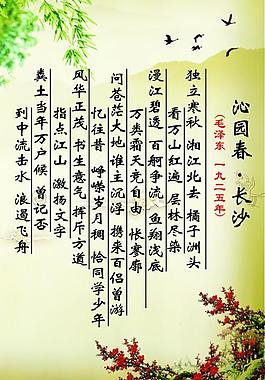 沁园春·长沙
(毛泽东 一九二五年)
独立寒秋 湘江北去 橘子洲头
看万山红遍 层林尽染
漫江碧透 百舸争流 鱼翔浅底
万类霜天竞自由 怅寥廓
问苍茫大地谁主沉浮 携来百侣曾游
忆往昔 峥嵘岁月稠 恰同学少年
风华正茂 书生意气 挥斥方遒
指点江山 激扬文字
粪土当年万户侯 曾记否
到中流击水 浪遏飞舟